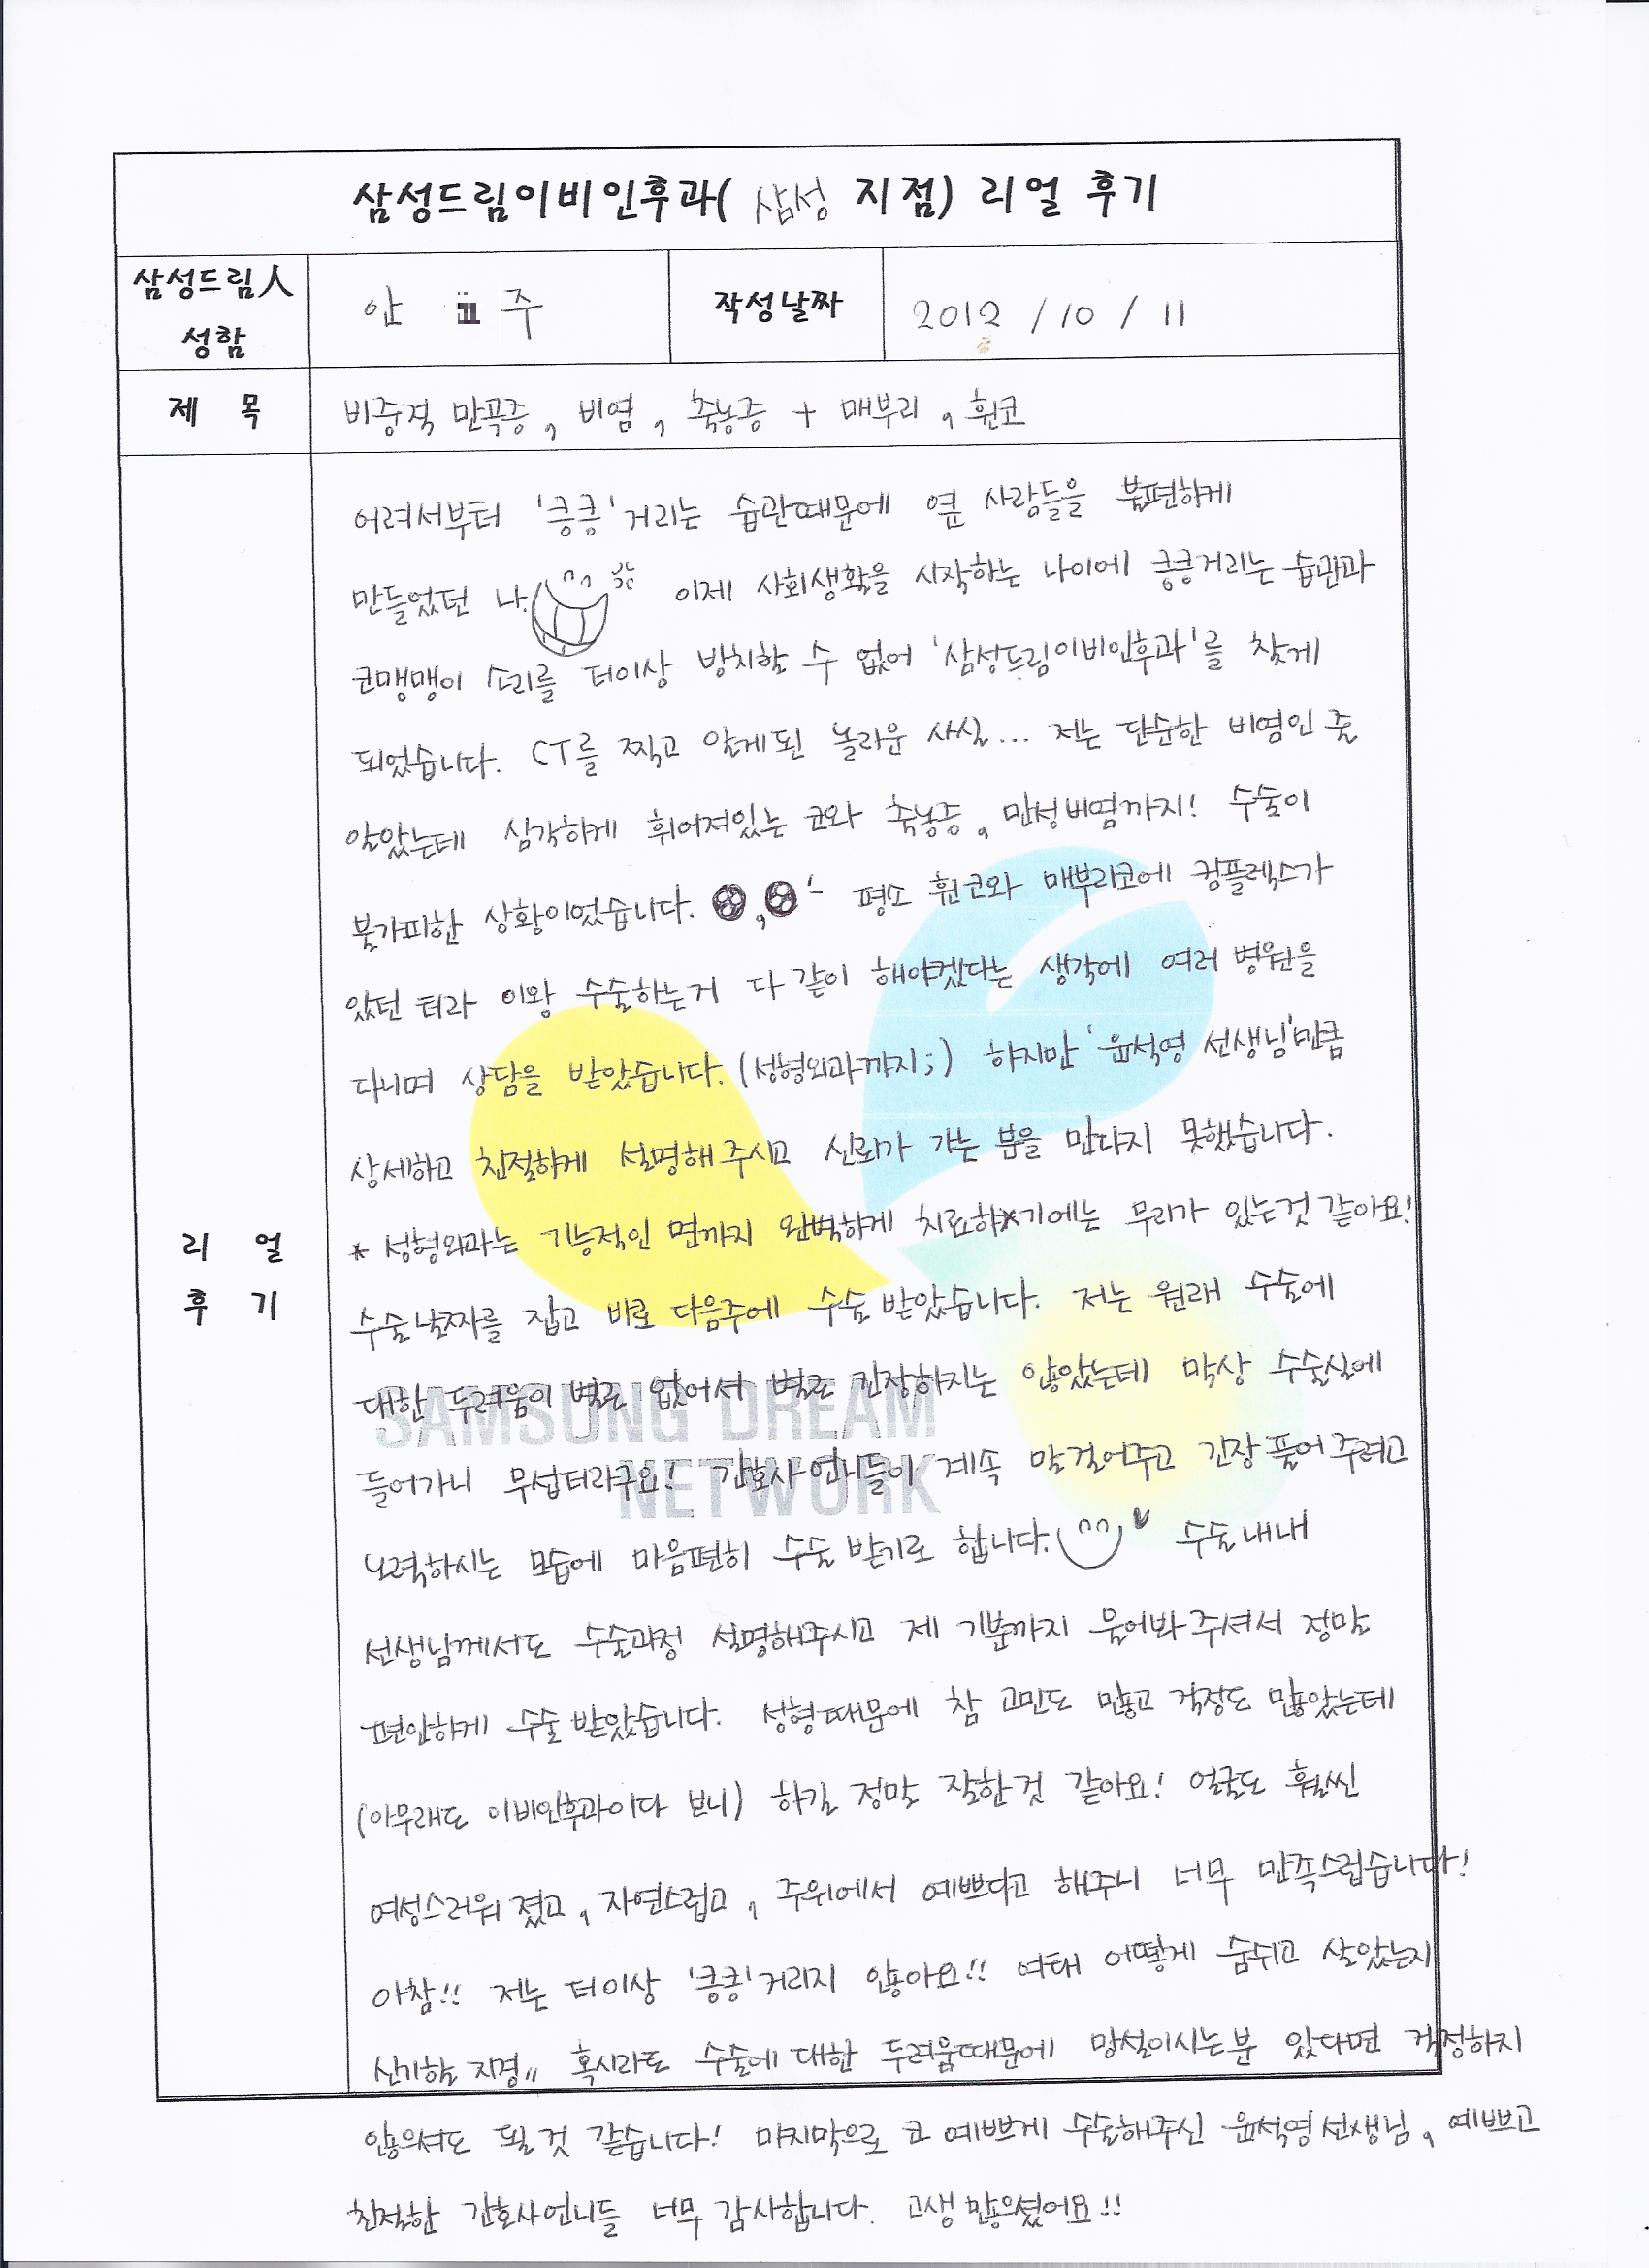 삼성드림이비인후과( 삼성 지점) 리얼 후기
삼성드림人
성함
안 주
작성날짜
2012 / 10 / 11
제 목
비중격 만곡증, 비염, 축농증 + 매부리, 휜코
리 얼
후 기
어려서부터 '킁킁'거리는 습관때문에 옆 사람들을 불편하게
만들었던 나. 이제 사회생활을 시작하는 나이에 킁킁거리는 습관과
코맹맹이 소리를 더이상 방치할 수 없어 '삼성드림이비인후과'를 찾게
되었습니다. CT를 찍고 알게된 놀라운 사실... 저는 단순한 비염인 줄
알았는데 심각하게 휘어져있는 코와 축농증, 만성비염까지! 수술이
불가피한 상황이었습니다. 평소 휜코와 매부리코에 컴플렉스가
있던 터라 이왕 수술하는거 다 같이 해야겠다는 생각에 여러 병원을
다니며 상담을 받았습니다. (성형외과까지;) 하지만 '윤석영 선생님'만큼
상세하고 친절하게 설명해 주시고 신뢰가 가는 분을 만나지 못했습니다.
* 성형외과는 기능적인 면까지 완벽하게 치료하기에는 무리가 있는것 같아요!
수술날짜를 잡고 바로 다음주에 수술 받았습니다. 저는 원래 수술에
대한 두려움이 별로 없어서 별로 긴장하지는 않았는데 막상 수술실에
들어가니 무섭더라구요! 간호사 언니들이 계속 말걸어주고 긴장 풀어 주려고
노력하시는 모습에 마음편히 수술 받기로 합니다. 수술내내
선생님께서도 수술과정 설명해주시고 제 기분까지 물어봐 주셔서 정말
편안하게 수술 받았습니다. 성형때문에 참 고민도 많고 걱정도 많았는데
(아무래도 이비인후과이다 보니) 하킬 정말 잘한것 같아요! 얼굴도 훨씬
여성스러워 졌고, 자연스럽고, 주위에서 예쁘다고 해주니 너무 만족스럽습니다!
아참!! 저는 더이상 '킁킁'거리지 않아요!! 여태 어떻게 숨쉬고 살았는지
신기할 지경,, 혹시라도 수술에 대한 두려움때문에 망설이시는분 있다면 걱정하지
않으셔도 될것 같습니다! 마지막으로 코 예쁘게 수술해주신 윤석영선생님, 예쁘고
친절한 간호사언니들 너무 감사합니다. 고생 많으셨어요!!
SAMSUNG DREAM
NETWORK